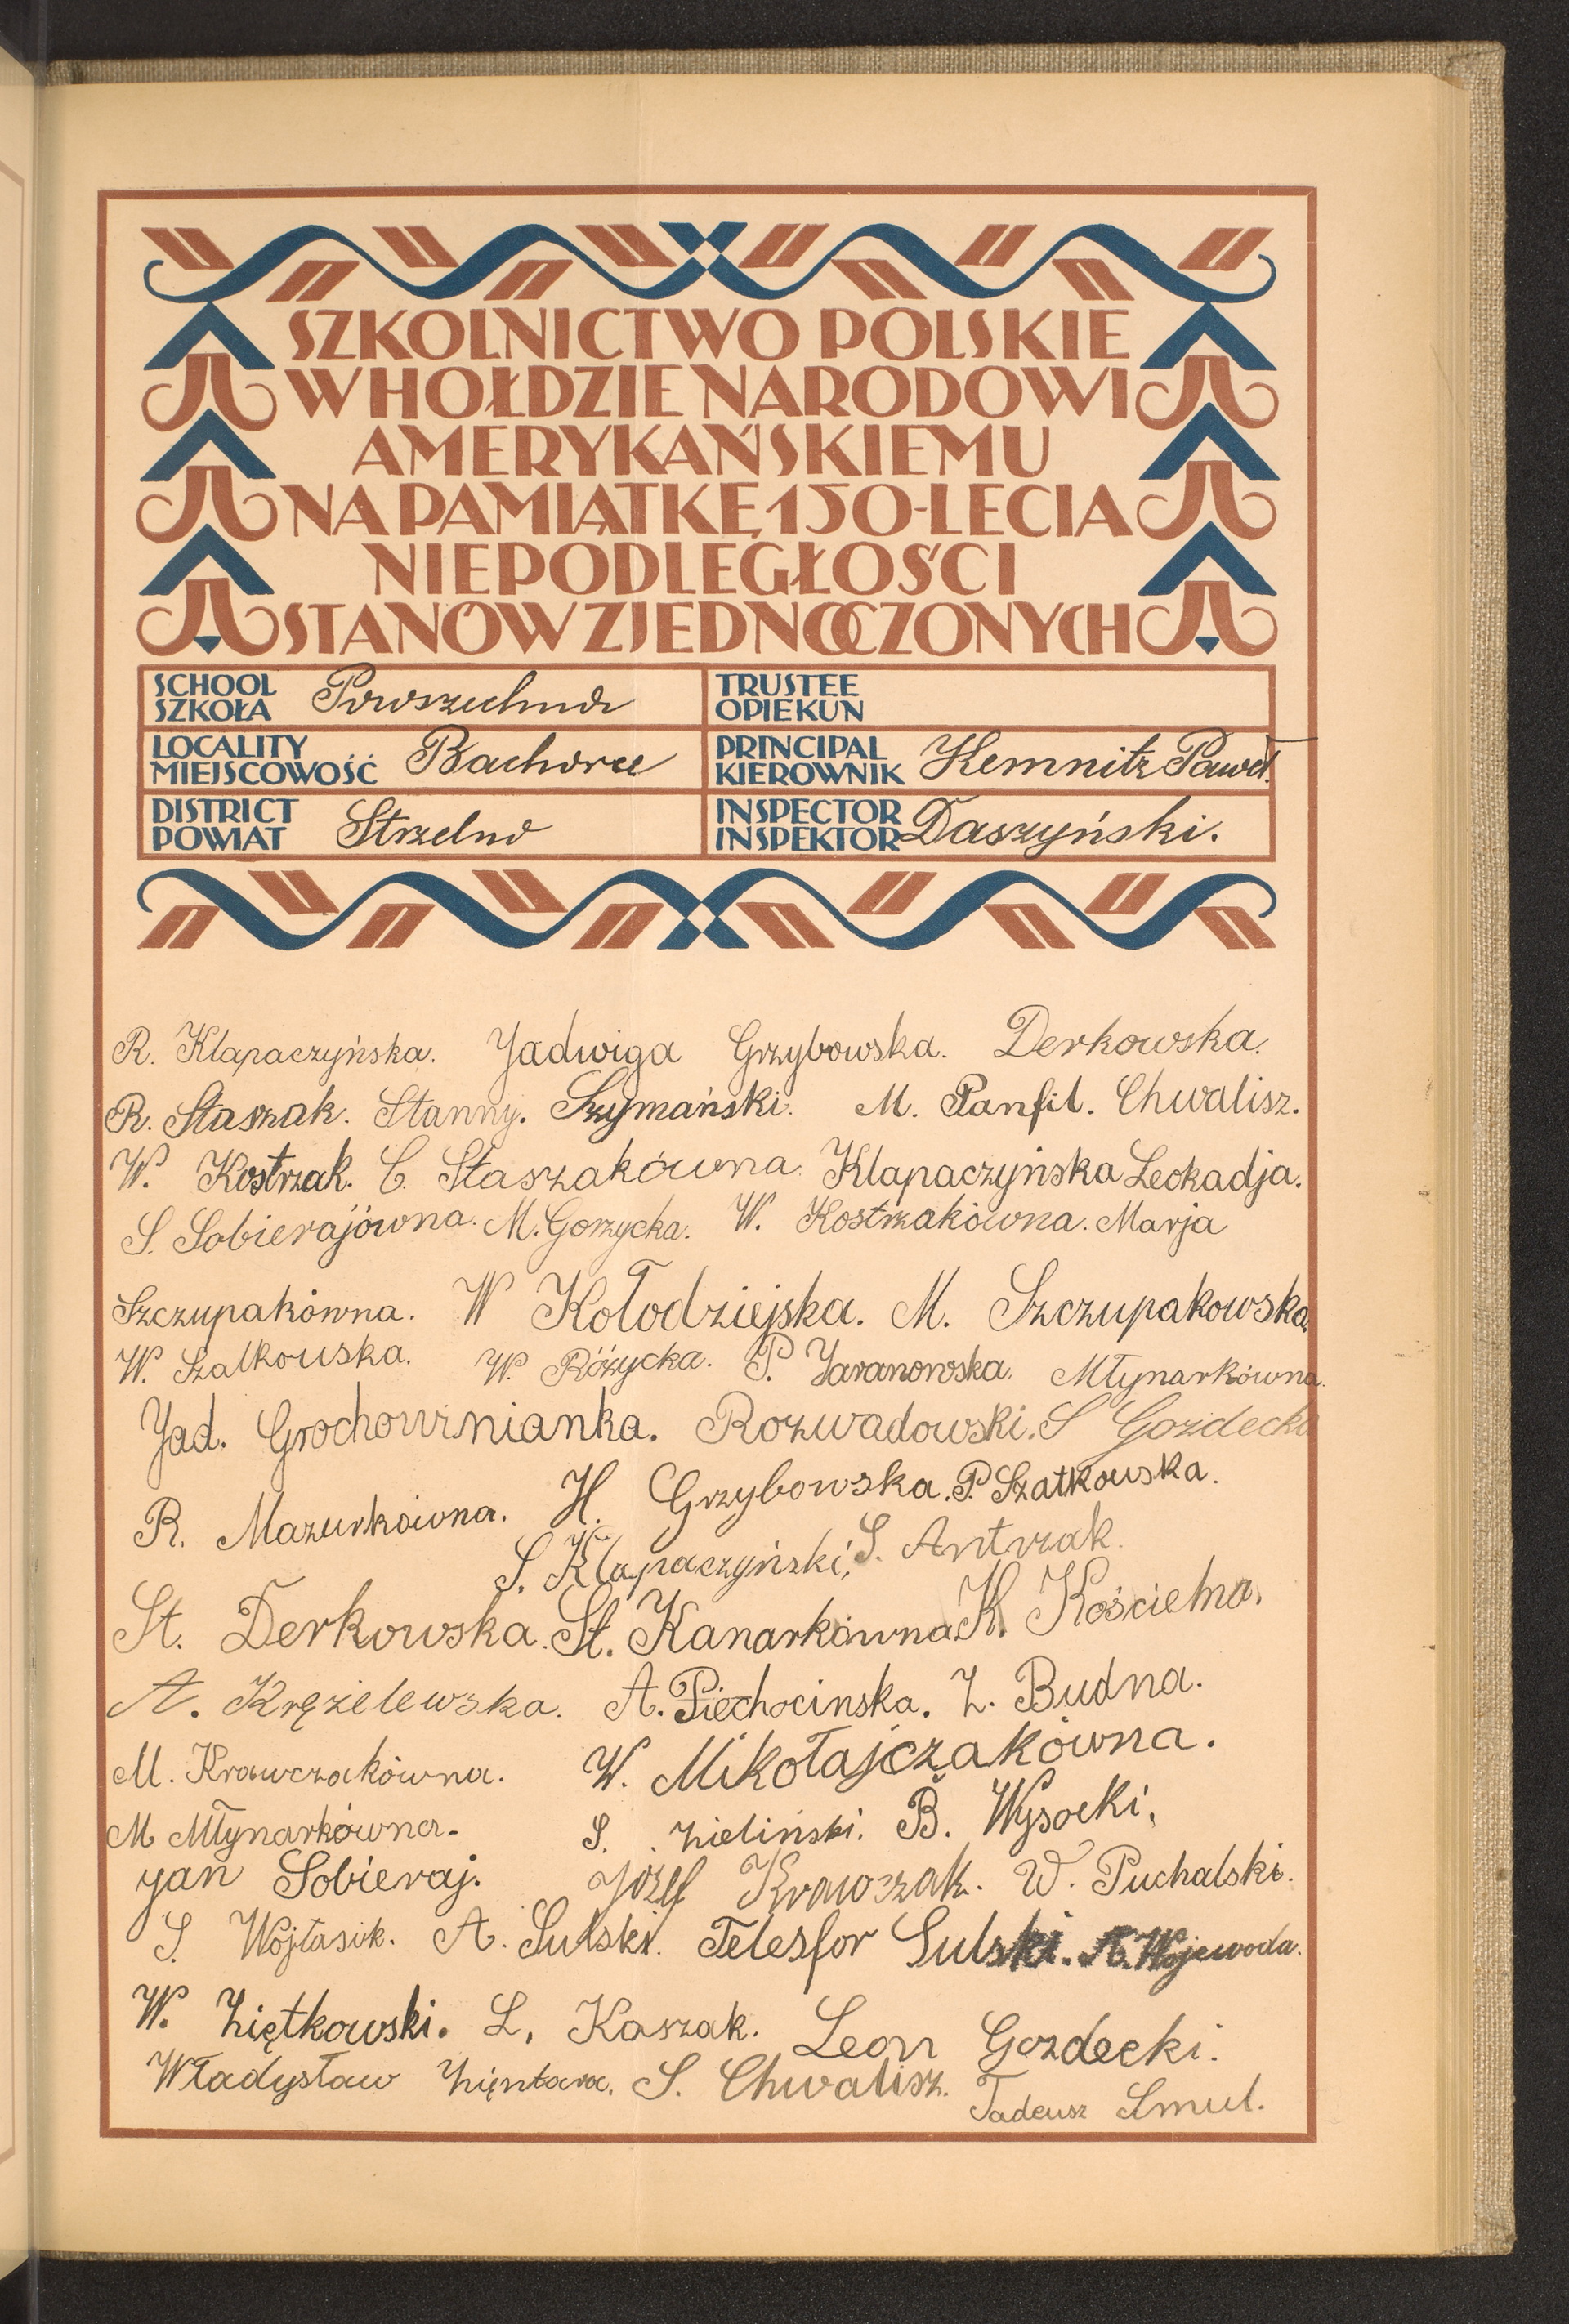 SZKOLNICTWO POLSKIE
W HOŁDZIE NARODOWI
AMERYKAŃSKIEMU
NA PAMIĄTKĘ 150-LECIA
NIEPODLEGŁOŚCI
STANÓW ZJEDNOCZONYCH
SCHOOL
SZKOŁA Powszechna
TRUSTEE
OPIEKUN
LOCALITY
MIEJSCOWOŚĆ Bachorce
PRINCIPAL
KIEROWNIK Kemnitz Paweł.
DISTRICT
POWIAT Strzelno
INSPECTOR
INSPEKTOR Daszyński.
R. Klapaczyńska. Jadwiga Grzybowska. Derkowska.
R. Staszak. Stanny. Szymański. M. Panfil. Chwalisz.
W. Kostrzak. C. Staszakówna. Klapaczyńska Leokadja.
S. Sobierajówna. M. Gorzycka. W. Kostrzakówna. Marja
Szczupakówna. W Kołodziejska. M. Szczupakowska.
W. Szalkouska. W. Różycka. P. Jaranowska. Młynarkówna.
Jad. Grochowinianka. Rozwadowski. S Gozdecki
R. Mazurkówna. H. Grzybowska. P. Szatkouska.
S. Klapaczyński, S. Antrzak.
St. Derkowska. St. Kanarkówna. K. Kościelna.
A. Krężelewska. A. Piechocinska. Z. Budna.
M. Krawczakówna. W. Mikołajczakówna.
M Młynarkówna. S. Zieliński. B. Wysocki.
Jan Sobieraj. Józef Krawczak. W. Puchalski.
S. Wojtasik. A. Sulski. Telesfor Sulski. A. Wojewoda.
W. Ziętkowski. L. Kaszak. Leon Gozdecki.
Władysław Ziętara. S. Chwalisz. Tadeusz Smul.